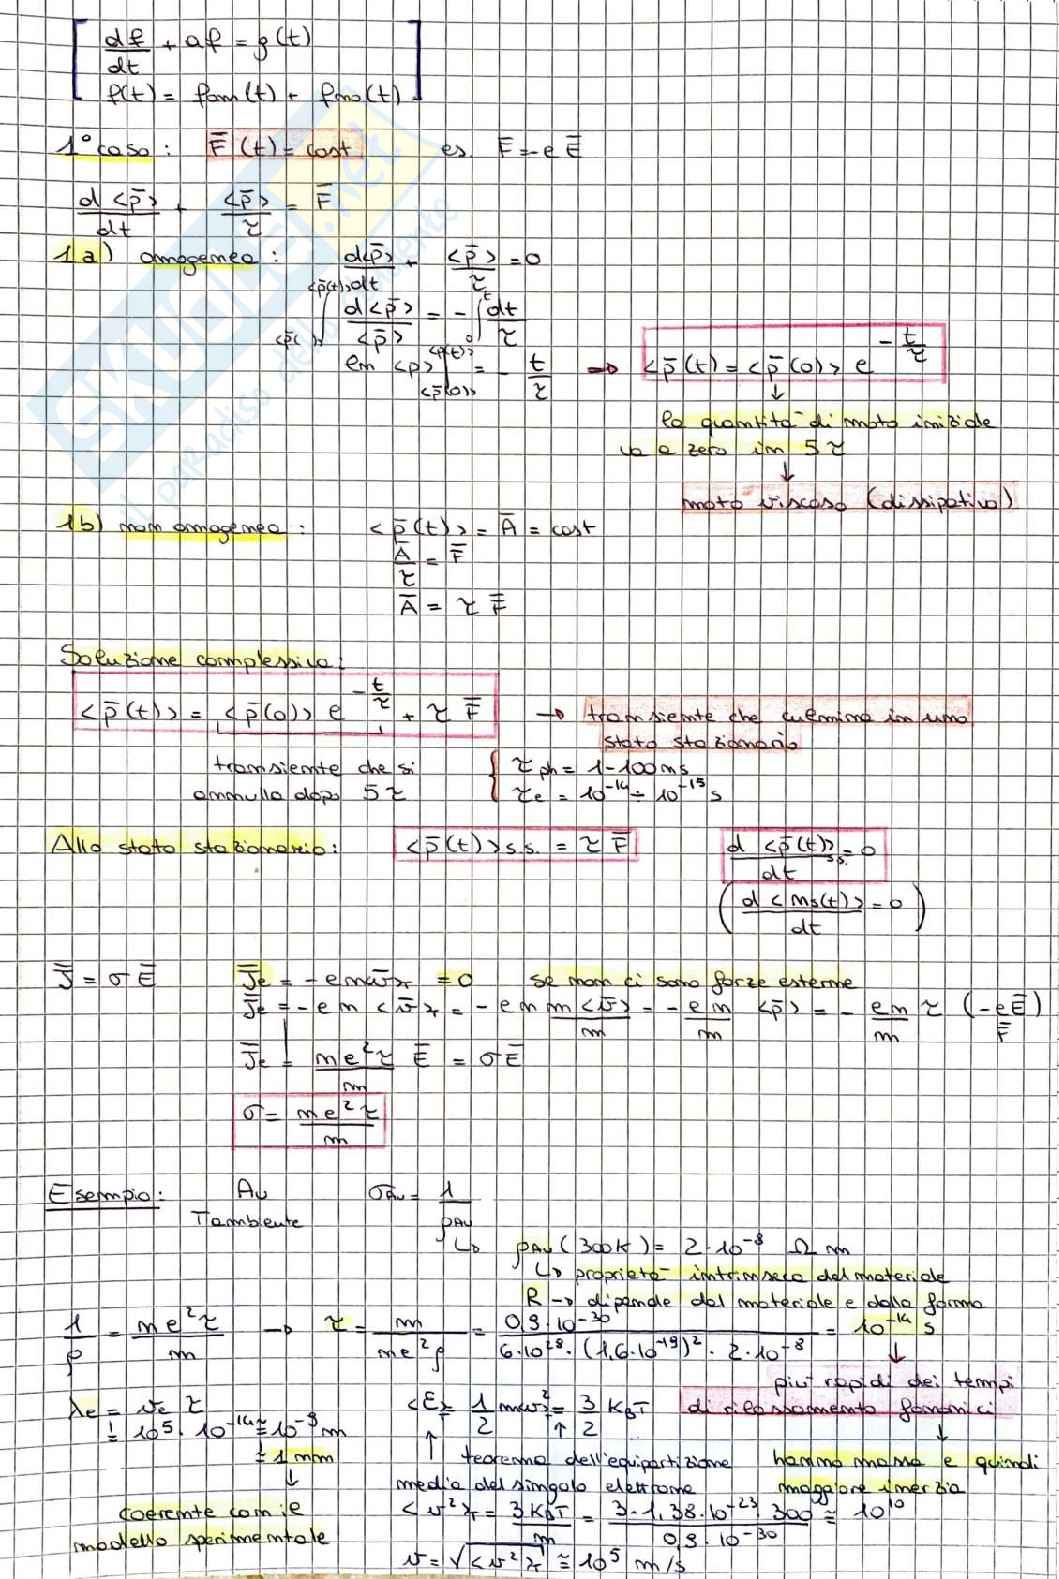 df/dt + af = g(t)
f(t) = fom(t) + fno(t)
1° caso: F̄(t) = cost es. F̄ = -e Ē
d<p̄>/dt + <p̄>/τ = F̄
1a) omogenea: d<p̄>/dt + <p̄>/τ = 0
∫ d<p̄>/<p̄> = - ∫₀ᵗ dt/τ
ln <p> |<p(t)> <p̄(0)> = - t/τ → <p̄(t)> = <p̄(0)> e^(-t/τ)
la quantità di moto iniziale
va a zero in 5τ
moto viscoso (dissipativo)
1b) non omogenea: <p̄(t)> = Ā = cost
Ā/τ = F̄
Ā = τ F̄
Soluzione complessiva:
<p̄(t)> = <p̄(0)> e^(-t/τ) + τ F̄ → transiente che culmina in uno
stato stazionario
transiente che si
annulla dopo 5τ
τph = 1-100 ns
τe = 10⁻¹⁴ ÷ 10⁻¹⁵ s
Allo stato stazionario: <p̄(t)>s.s. = τ F̄ d<p̄(t)>s.s./dt = 0
(d<ns(t)>/dt = 0)
J̄ = σ Ē J̄e = -en<v̄>r = 0 se non ci sono forze esterne
J̄e = -en <v̄>r = -en m<v̄>/m = - en/m <p̄> = - en/m τ (-eĒ)
F̄
J̄e = ne²τ/m Ē = σĒ
σ = ne²τ/m
Esempio: Au σAu = 1/ρAu
Tambiente
↳ ρAu (300K) = 2·10⁻⁸ Ω m
↳ proprietà intrinseca del materiale
R → dipende dal materiale e dalla forma
1/ρ = ne²τ/m → τ = m/(ne²ρ) = 0,9·10⁻³⁰/(6·10²⁸·(1,6·10⁻¹⁹)²·2·10⁻⁸) = 10⁻¹⁴ s
più rapidi dei tempi
di rilassamento fononici
λe = ve τ <E> = 1/2 m<v²> = 3/2 KBT
= 10⁵·10⁻¹⁴ ≅ 10⁻⁹ m
≅ 1 nm
teorema dell'equipartizione hanno massa e quindi
media del singolo elettrone maggiore inerzia
coerente con il
modello sperimentale
<v²>r = 3KBT/m = 3·1,38·10⁻²³·300/(0,9·10⁻³⁰) ≅ 10¹⁰
v = √<v²>r ≅ 10⁵ m/s